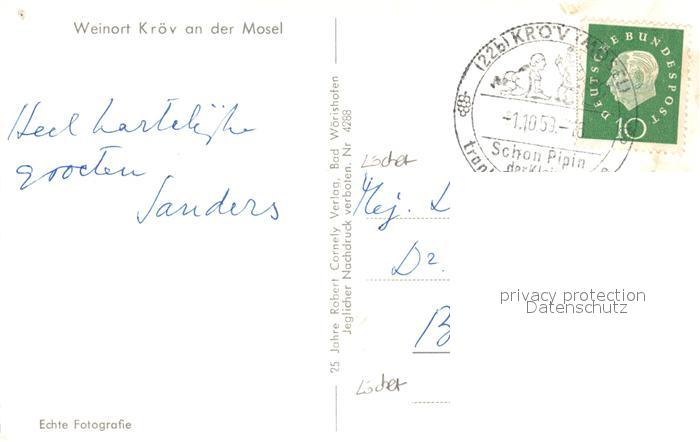 Weinort Kröv an der Mosel
Heel hartelijke
groeten
Sanders
Echte Fotografie
25 Jahre Robert Cornely Verlag, Bad Wörishofen
Jeglicher Nachdruck verboten. Nr. 4288
(22b) KRÖV
-1.10.59.-
Schon Pipin
der Klei
tran
DEUTSCHE BUNDESPOST
10
Löcher
Mej. L
Dr.
B
Löcher
privacy protection
Datenschutz